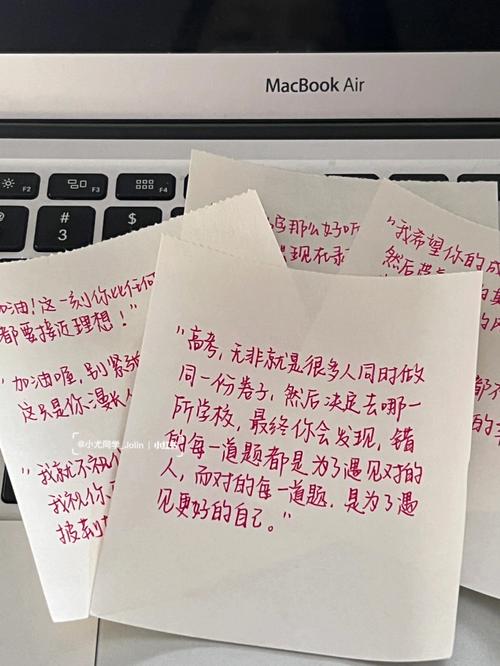 MacBook Air
F2
F3
F4
#
3
$
那么好听
现在录
"我希望你的成
然后
加油！这一刻你比任何
都要接近理想！"
"加油喔，别紧张
这只是你漫长人
"我就不祝
我祝你
披荆
"高考，无非就是很多人同时做
同一份卷子，然后决定去哪一
所学校，最终你会发现，错
的每一道题都是为了遇见对的
人，而对的每一道题，是为了遇
见更好的自己。"
@小尤同学_Jolin | 小红书